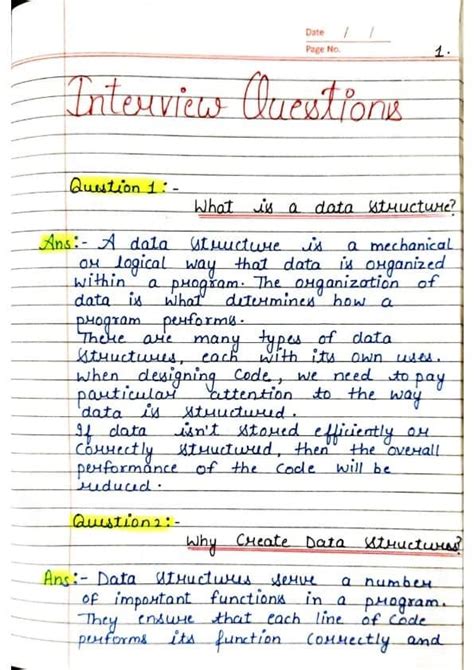 Date / /
Page No. 1.
Interview Questions
Question 1:-
What is a data structure?
Ans:- A data structure is a mechanical
or logical way that data is organized
within a program. The organization of
data is what determines how a
program performs.
There are many types of data
structures, each with its own uses.
When designing Code, we need to pay
particular attention to the way
data is structured.
If data isn't stored efficiently or
correctly structured, then the overall
performance of the code will be
reduced.
Question 2:-
Why Create Data Structures?
Ans:- Data structures serve a number
of important functions in a program.
They ensure that each line of code
performs its function correctly and